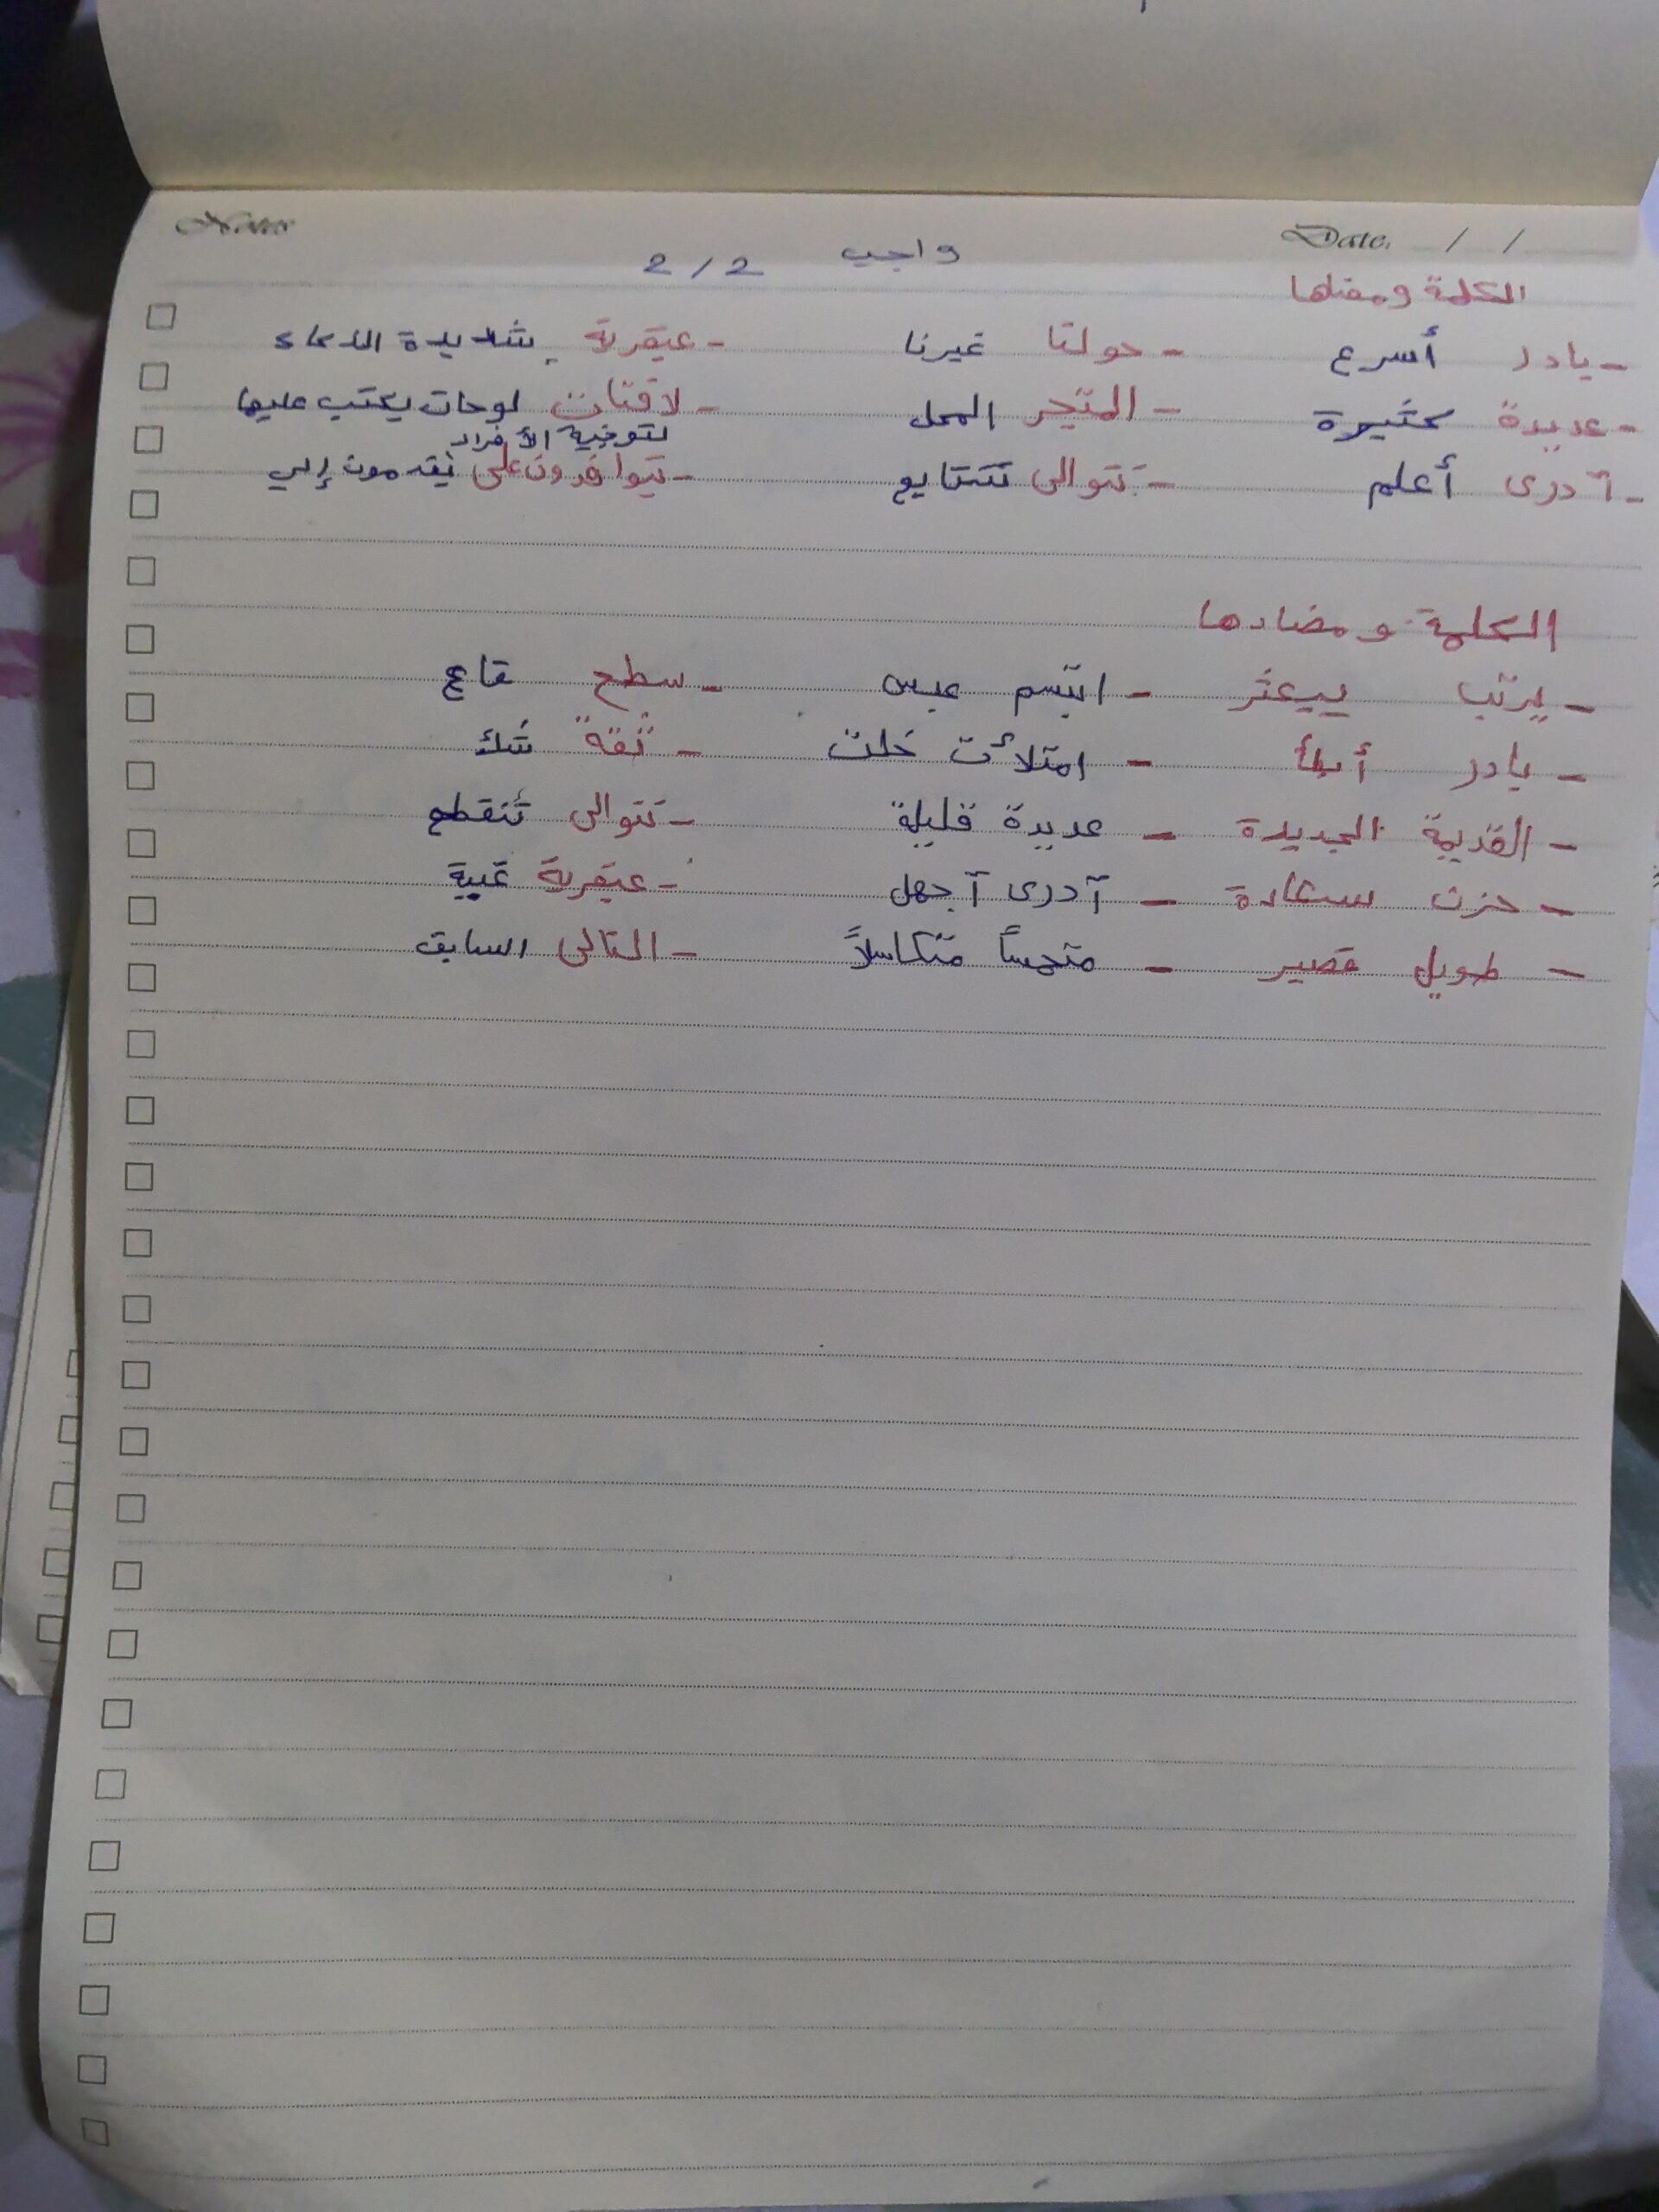 Date. / /
واجب 2/2
الكلمة ومعناها
- بادر أسرع - حولنا غيرنا - عبقرية شديدة الذكاء
- عديدة كثيرة - المتجر المحل - لافتات لوحات يكتب عليها
لتوعية الأفراد
- أدرى أعلم - تتوالى تتتابع - يتوافدون على يقدمون إلى
الكلمة ومضادها
- يرتب يبعثر - ابتسم عبس - سطح قاع
- بادر أبطأ - امتلأت خلت - ثقة شك
- القديمة الجديدة - عديدة قليلة - تتوالى تنقطع
- حزن سعادة - أدرى أجهل - عبقرية غبية
- طويل قصير - متحمساً متكاسلاً - التالى السابق